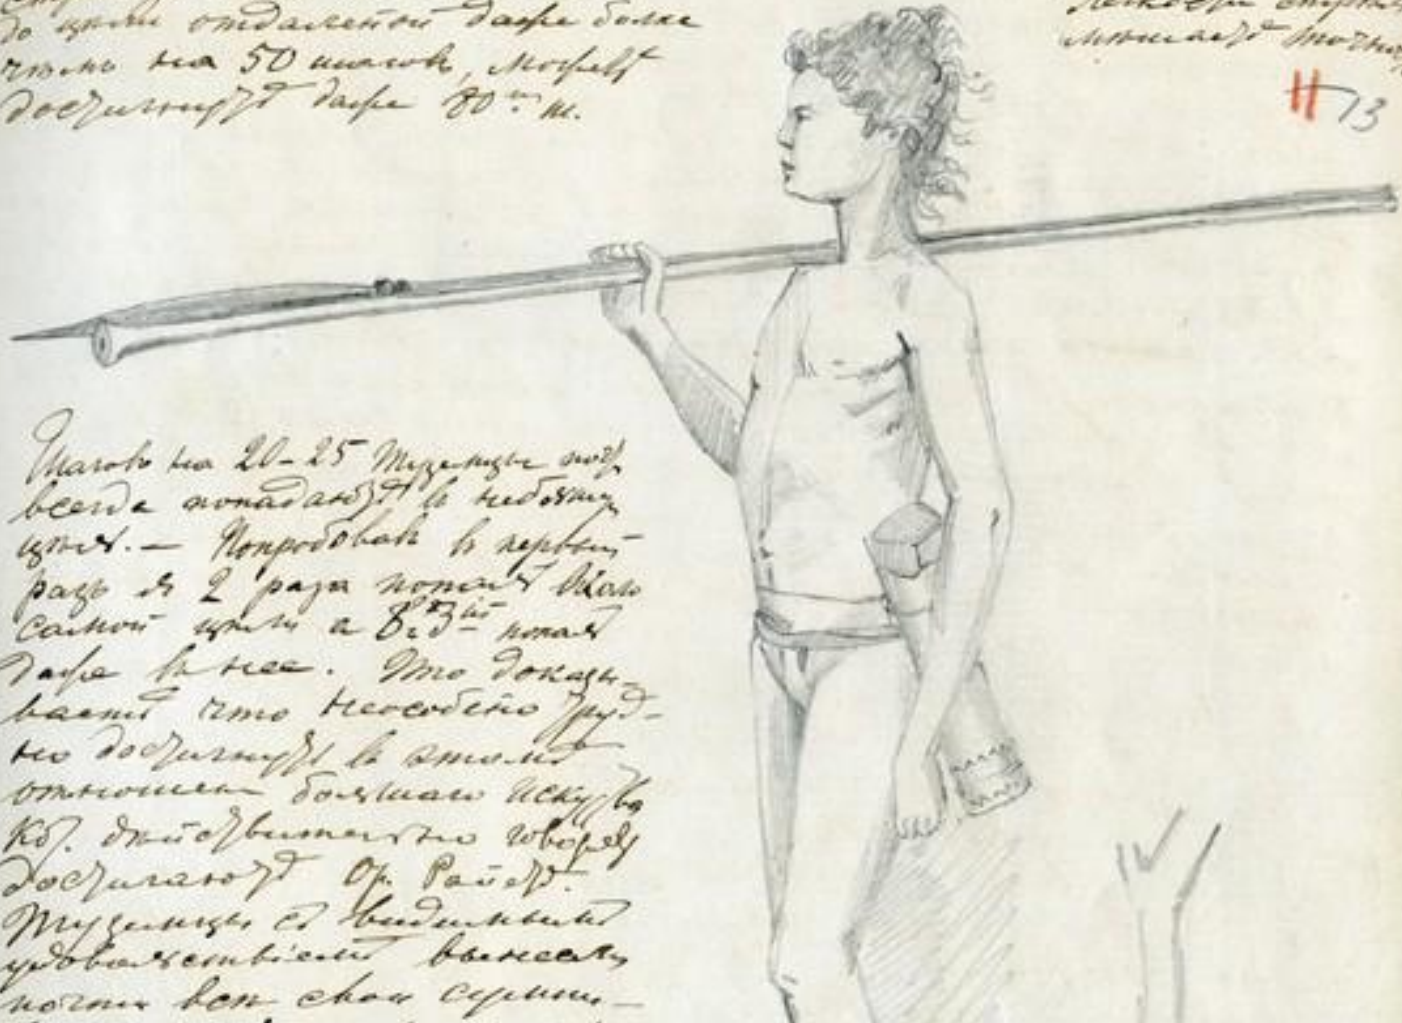 до цели отдаленной даже более
чѣмъ на 50 шаговъ, можетъ
достигнуть даже 80 ш.
мѣшаетъ
II 73
Шаговъ на 20-25 туземцы почт.
всегда попадаютъ въ небольш.
цѣль. — Попробовавъ въ первый
разъ я 2 раза попалъ около
самой цѣли а въ 3ій попалъ
даже въ нее. Это доказы-
ваетъ что неособенно труд-
но достигнуть въ этомъ
отношеніи большаго искуства
кот. дѣйствительно говорятъ
достигаютъ Ор. Райетъ.
Туземцы съ видимымъ
удовольствіемъ вынесли
почти всѣ свои сумпи-